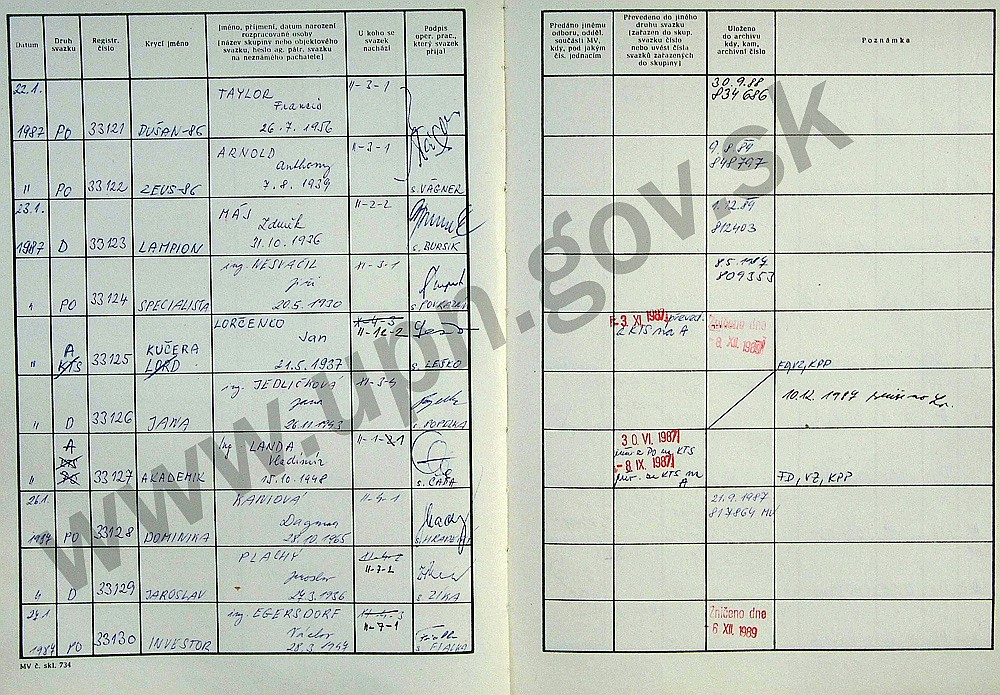 Datum
Druh svazku
Registr. číslo
Krycí jméno
Jméno, příjmení, datum narození
rozpracované osoby
(název skupiny nebo objektového
svazku, heslo ag. pátr. svazku
na neznámého pachatele)
U koho se svazek nachází
Podpis oper. prac., který svazek přijal
Předáno jinému odboru, odděl. součásti MV, kdy, pod jakým čís. jednacím
Převedeno do jiného druhu svazku
(zařazen do skup. svazku číslo
nebo uvést čísla svazků zařazených
do skupiny)
Uloženo do archivu kdy, kam, archivní číslo
Poznámka
22.1. TAYLOR II-3-1 30.9.88
Francis 834686
1987 PO 33121 DUŠAN-86 26.7.1956
ARNOLD II-3-1 9.8.89
Anthony 848797
" PO 33122 ZEUS-86 7.8.1939 s. VÁGNER
23.1. MÁJ II-2-2 1.12.89
Zdeněk 812403
1987 D 33123 LAMPION 31.10.1936 s. BURSIK
ing. NESVAČIL II-3-1 8.5.1987
Jiří 809353
" PO 33124 SPECIALISTA 20.5.1930
LORČENKO II-4-3 -3. XI. 1987 převed. Zničeno dne
A KUČERA Jan II-12-2 z KTS na A -8. XII. 1989
" KTS 33125 LORD 21.5.1937 s. LEŠKO FD, VZ, KPP
ing. JEDLIČKOVÁ II-3-4
Jana 10.12.1987
" D 33126 JANA 26.11.1943
A Ing. LANDA 30. VI. 1987
KTS Vladimír na KTS
" PO 33127 AKADEMIK 15.10.1948 s. ČÁKA -8. IX. 1987 FD, VZ, KPP
KTS na A
26.1. KANIOVÁ II-4-1 21.9.1987
Dagmar 817864 MV
1987 PO 33128 DOMINIKA 28.10.1965
PLACHÝ
Jaroslav II-7-2
" D 33129 JAROSLAV 27.3.1936 s. ZÍKA
27.1. ing. EGERSDORF II-4-3 Zničeno dne
Václav II-7-1 -6 XII. 1989
1987 PO 33130 INVESTOR 28.3.1947 s. FIALKA
MV č. skl. 734
www.upn.gov.sk